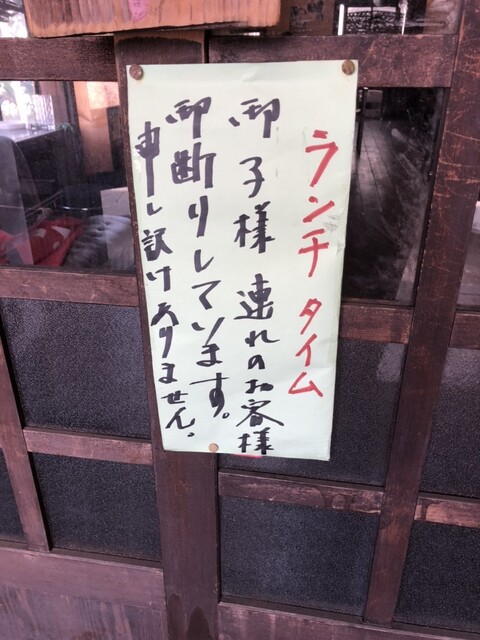 ランチタイム
御子様連れのお客様
御断りしています。
申し訳けありません。